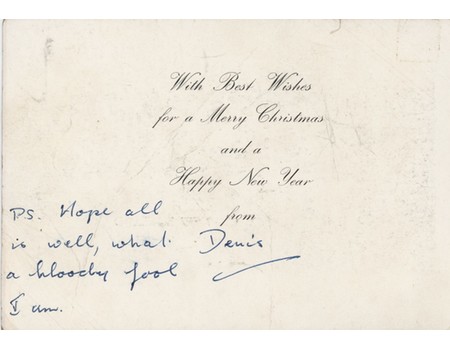 With Best Wishes
for a Merry Christmas
and a
Happy New Year
from
Denis
PS. Hope all
is well, what
a bloody fool
I am.